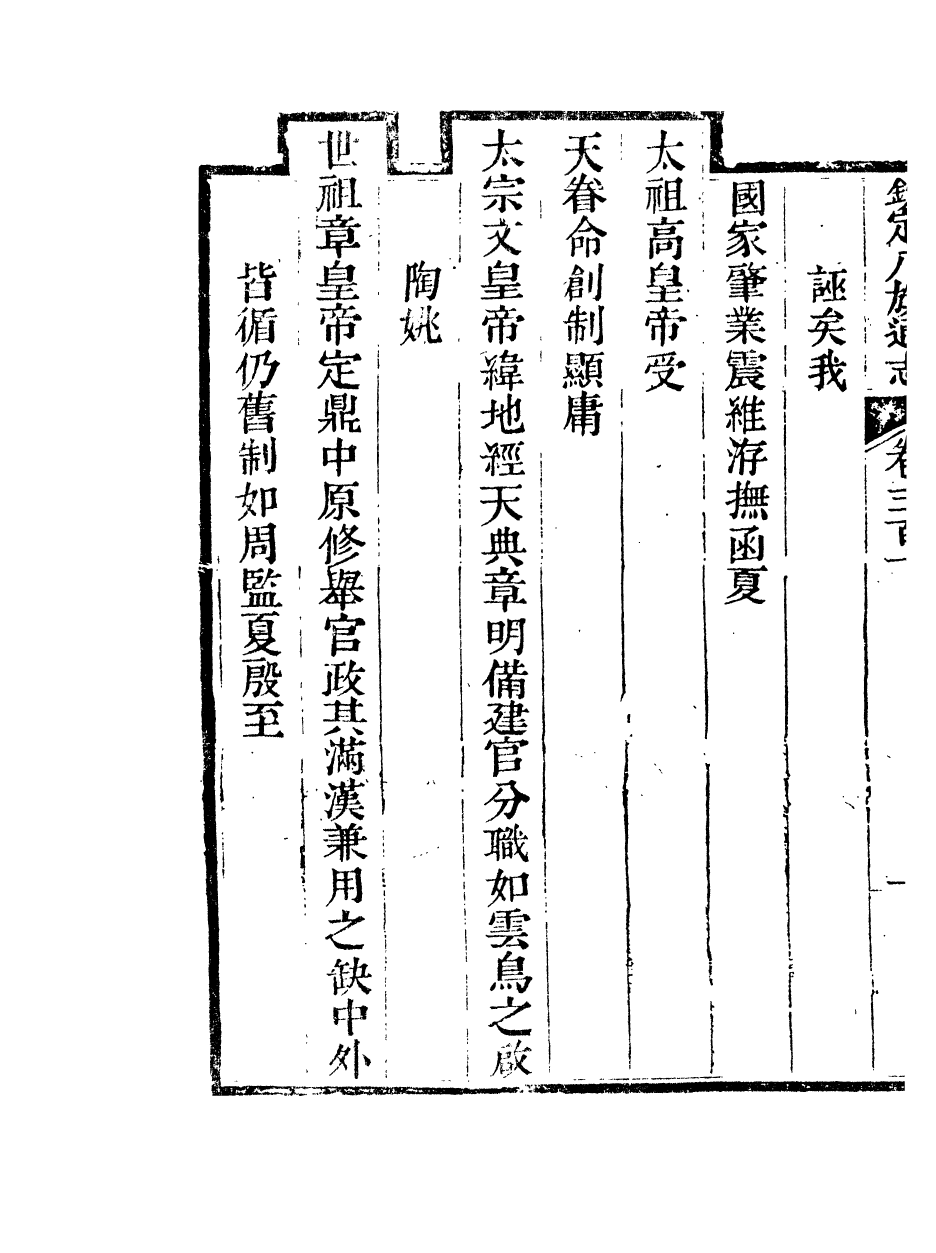 欽定八旗通志 卷三百一 一
誣矣我
國家肇業震維洊撫函夏
太祖高皇帝受
天眷命創制顯庸
太宗文皇帝緯地經天典章明備建官分職如雲鳥之啟
陶姚
世祖章皇帝定鼎中原修舉官政其滿漢兼用之缺中外
皆循仍舊制如周監夏殷至